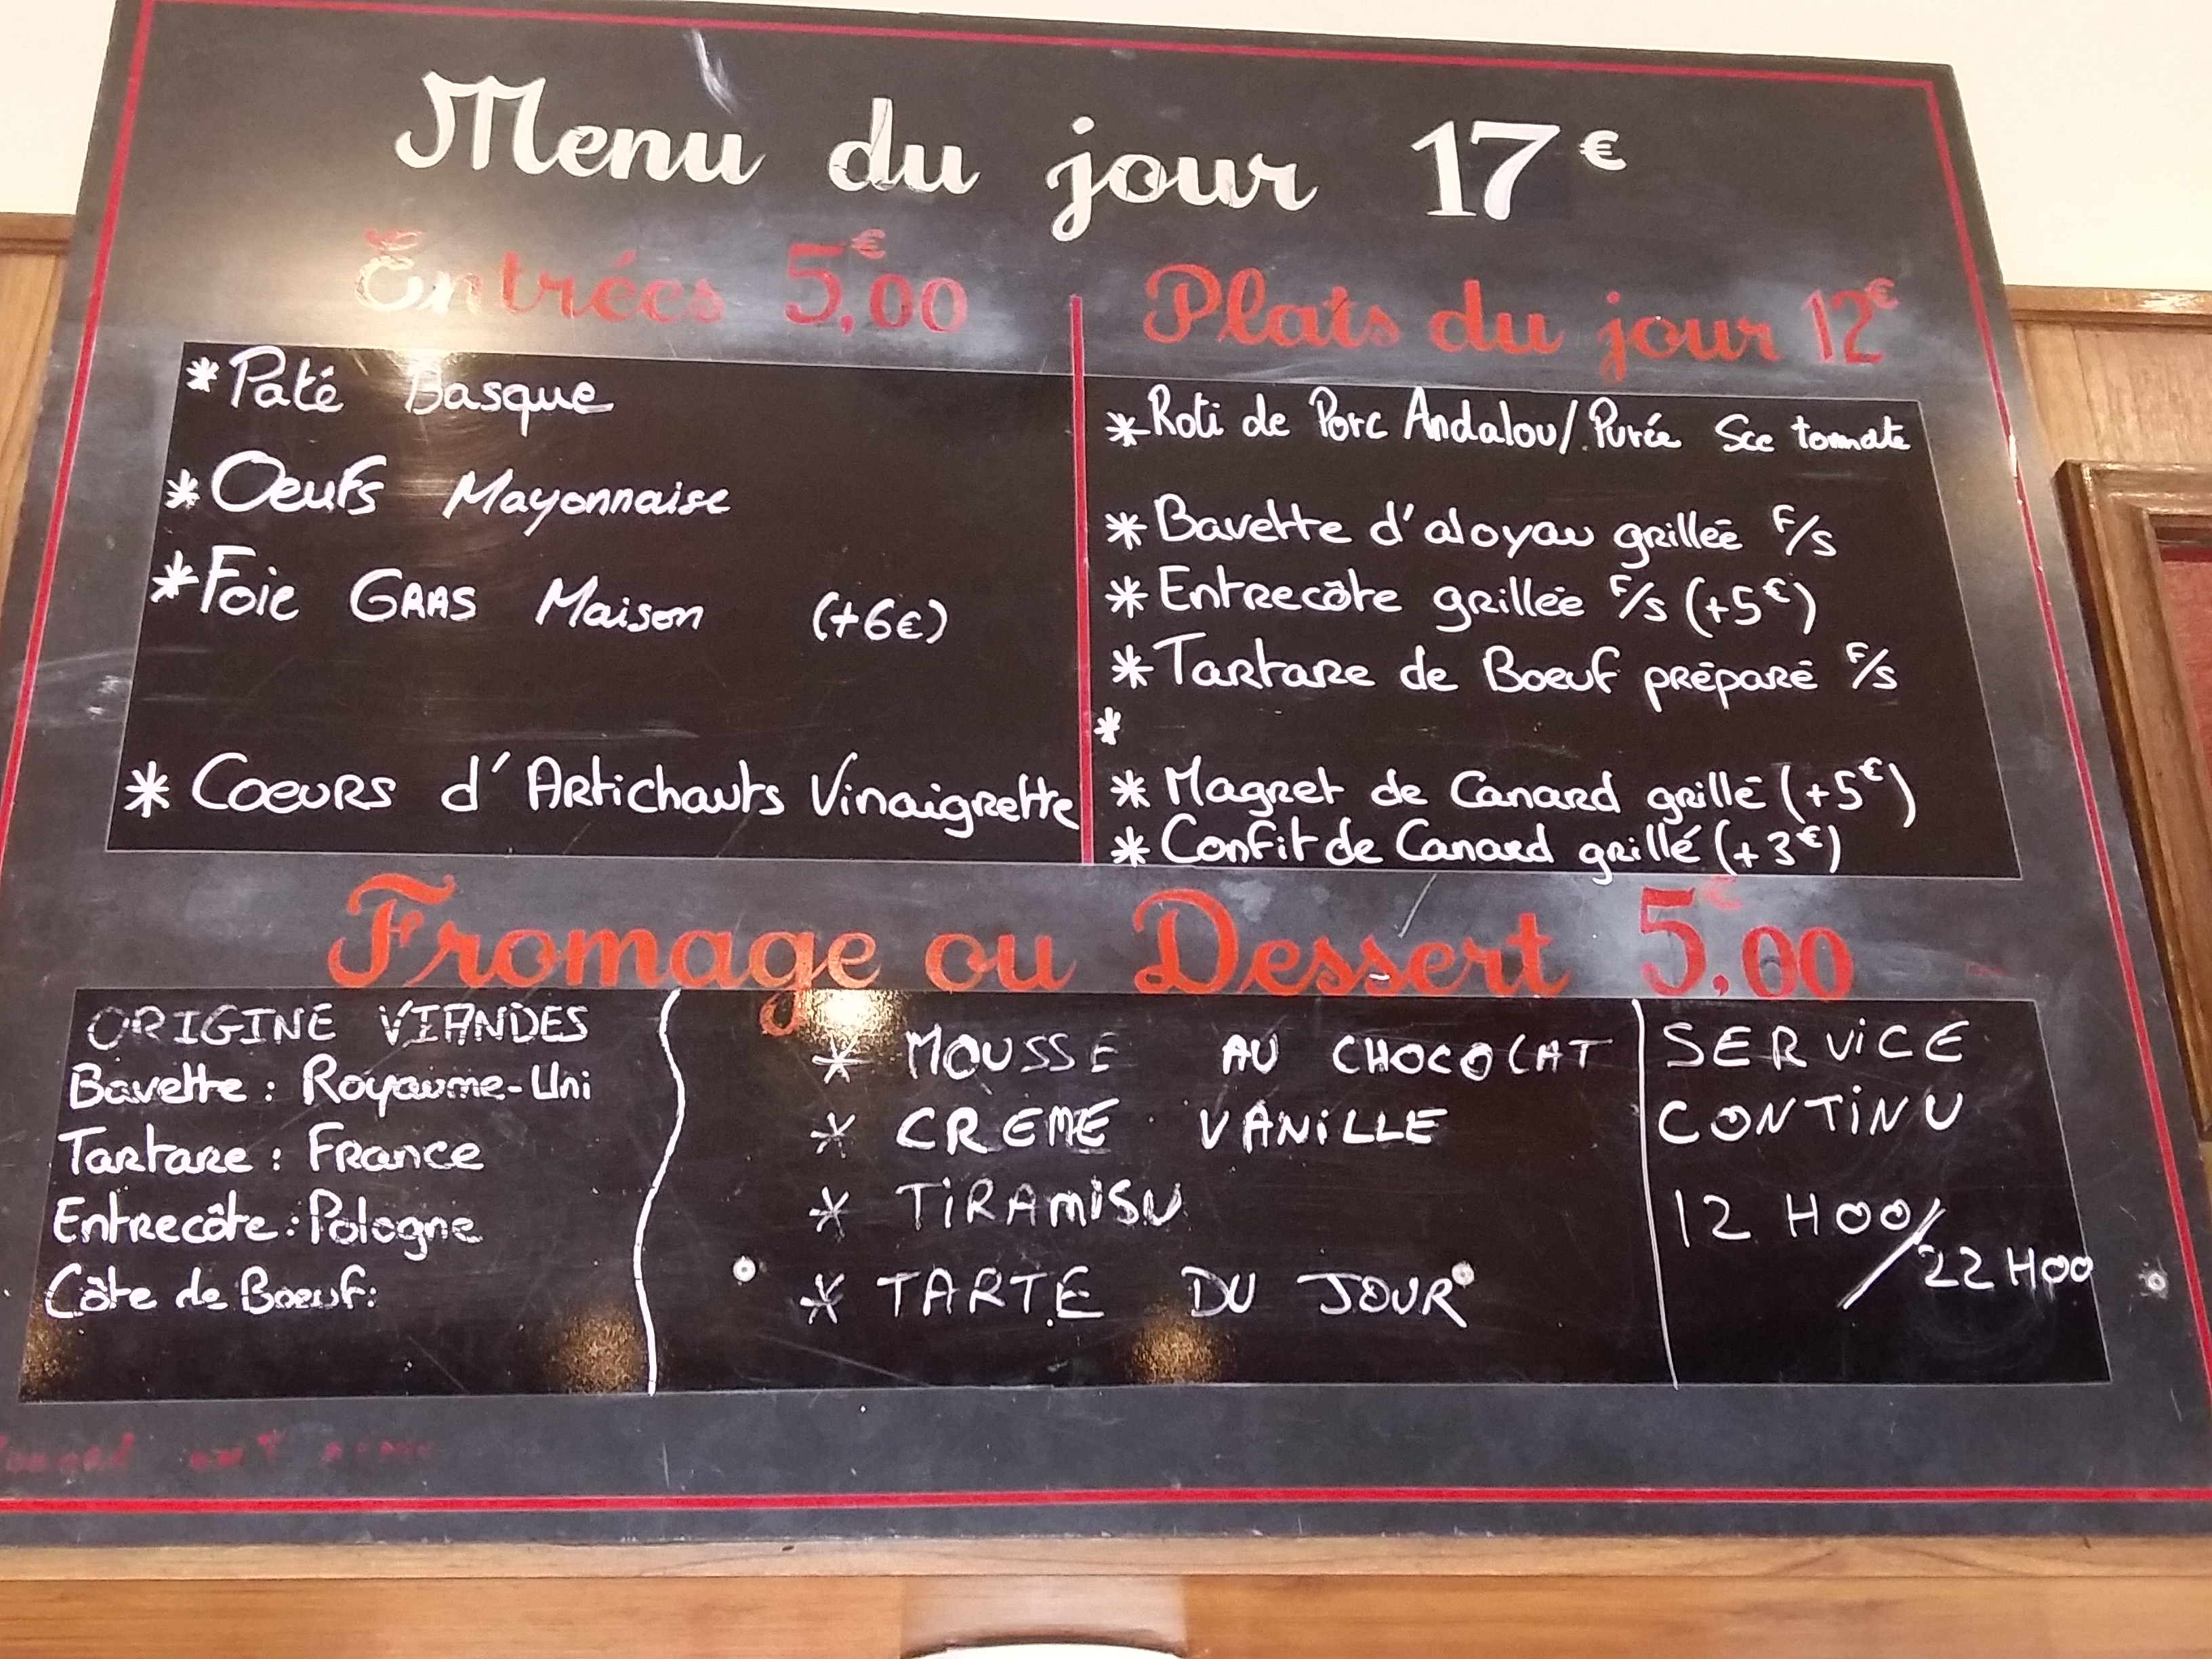 Menu du jour 17€
Entrées 5,€00
* Paté Basque
* Oeufs Mayonnaise
* Foie GRAS Maison (+6€)
* Coeurs d'Artichauts Vinaigrette
Plats du jour 12€
* Roti de Porc Andalou/Purée Sce tomate
* Bavette d'aloyau grillée F/S
* Entrecôte grillée F/S (+5€)
* Tartare de Boeuf préparé F/S
*
* Magret de Canard grillé (+5€)
* Confit de Canard grillé (+3€)
Fromage ou Dessert 5,€00
ORIGINE VIANDES
Bavette : Royaume-Uni
Tartare : France
Entrecôte : Pologne
Côte de Boeuf:
* MOUSSE AU CHOCOLAT
* CREME VANILLE
* TIRAMISU
* TARTE DU JOUR
SERVICE
CONTINU
12 H00/
22 H00